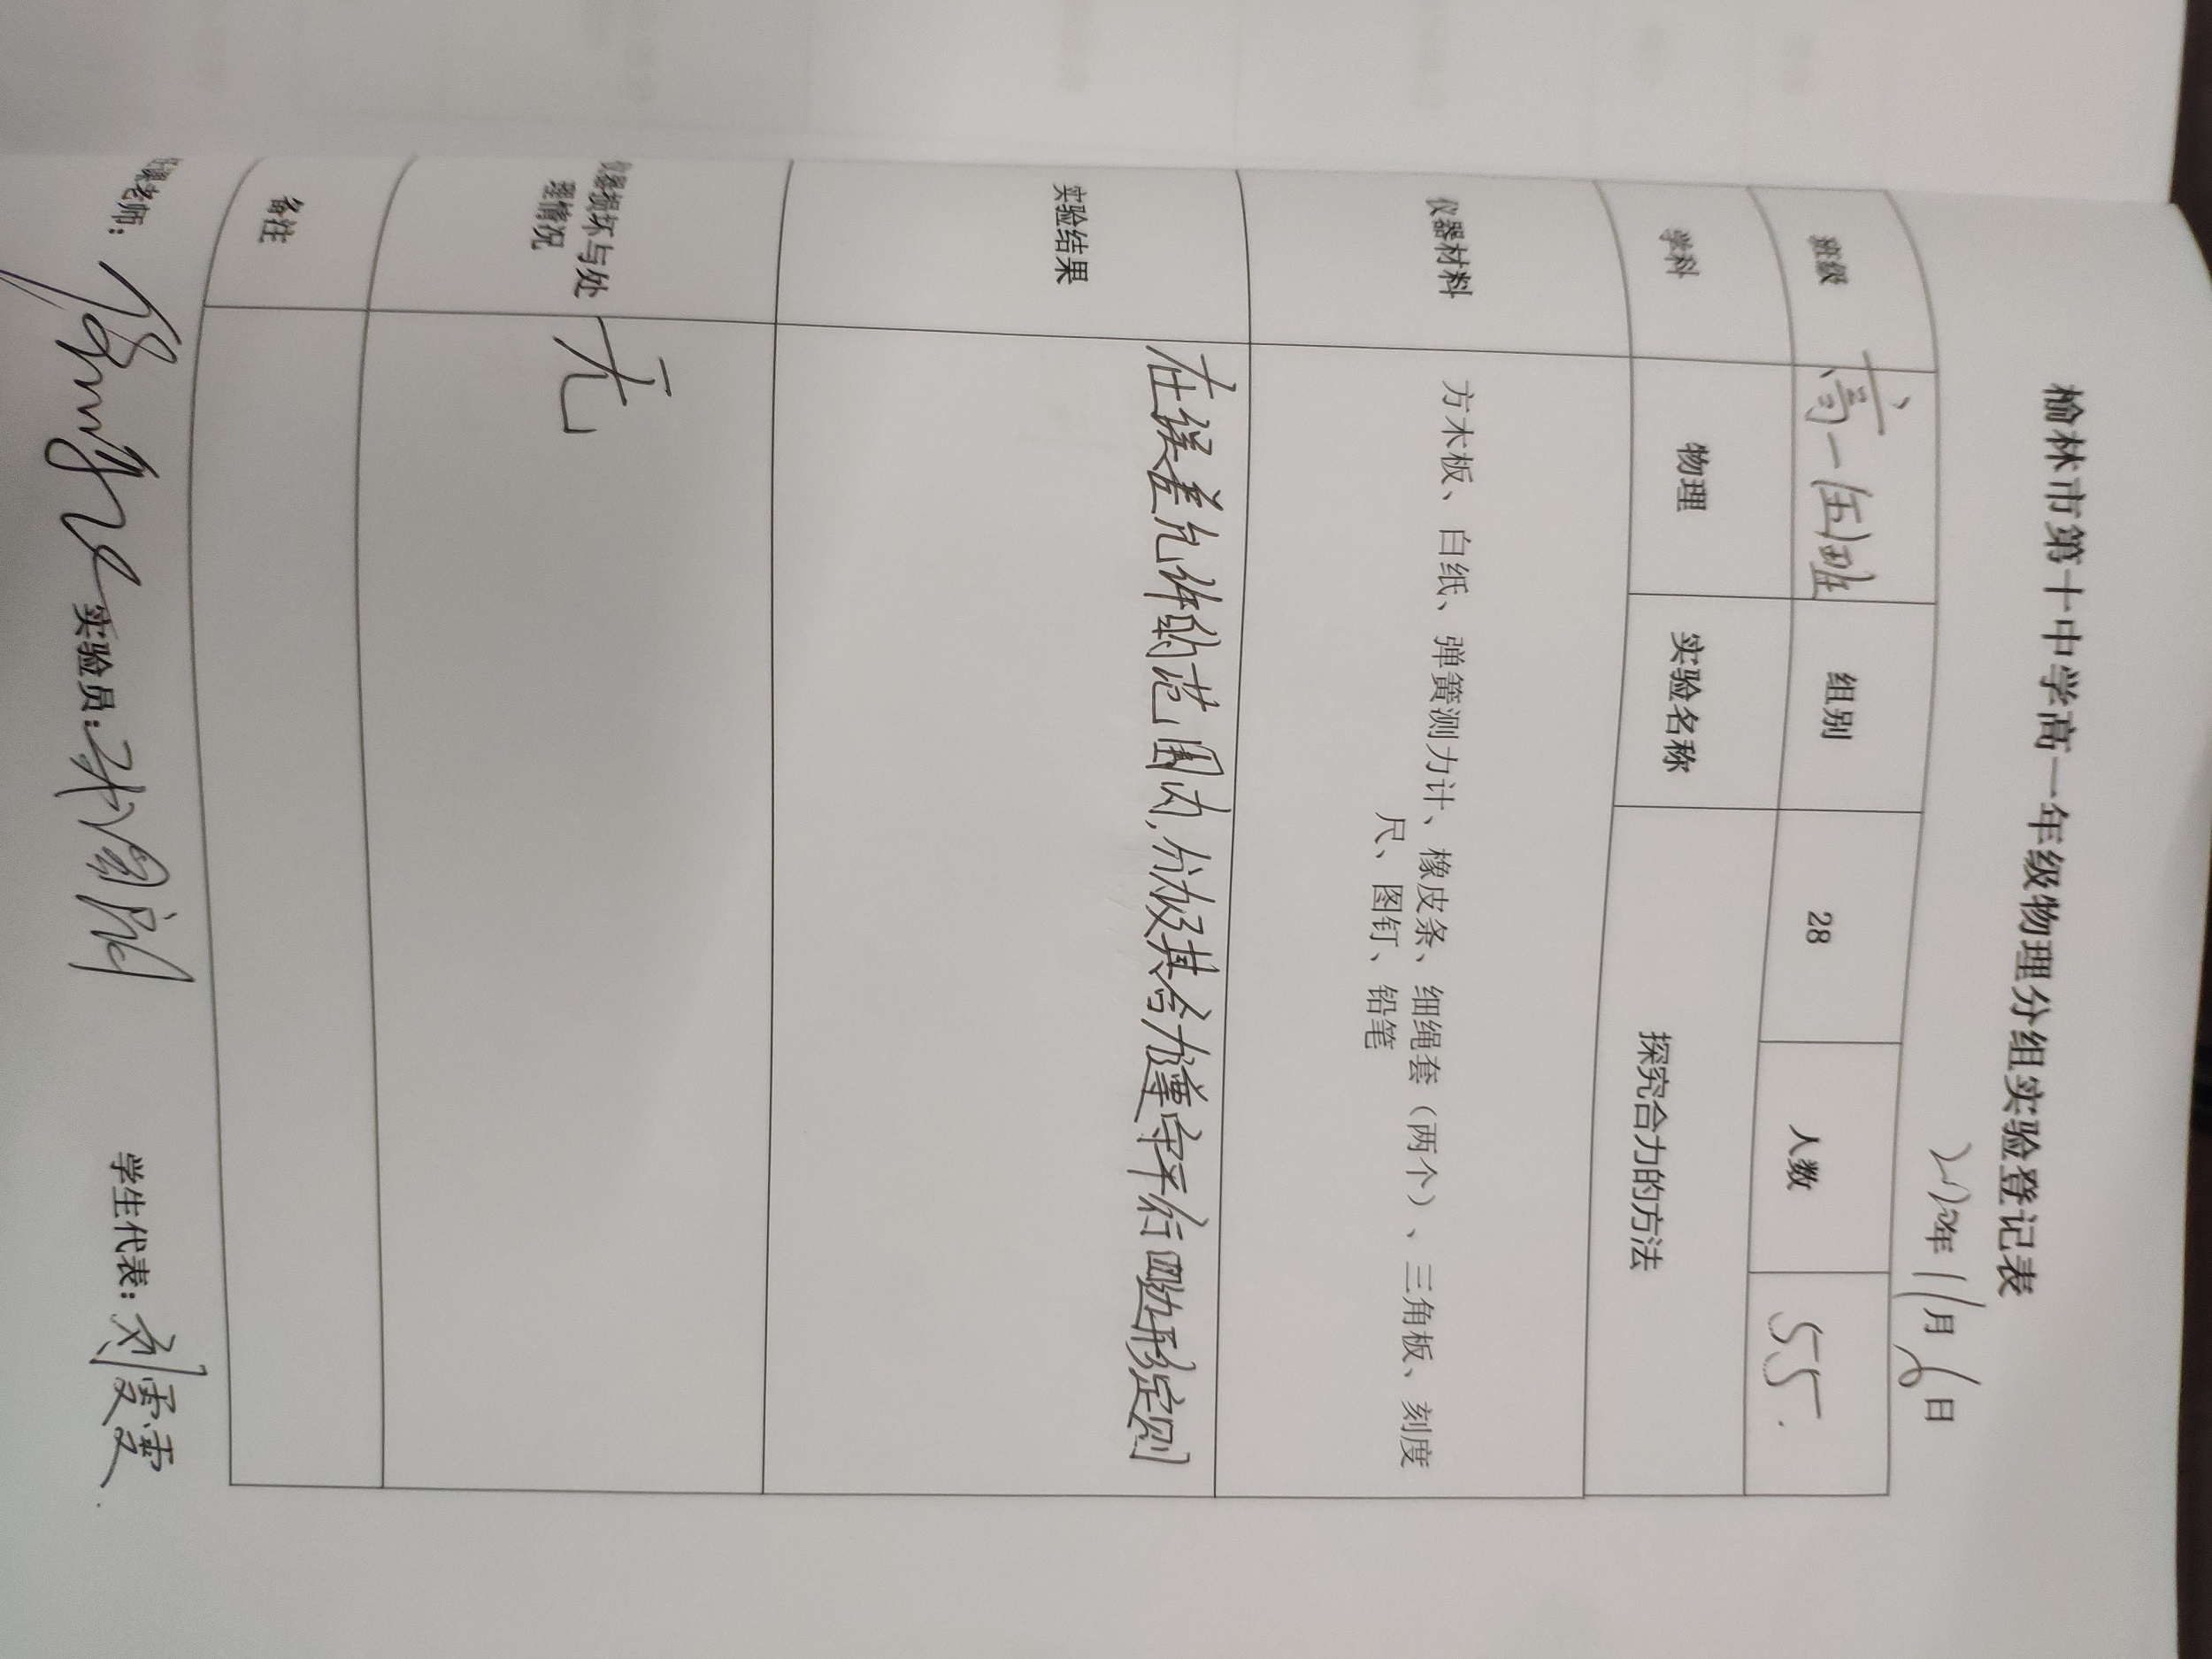 榆林市第十中学高一年级物理分组实验登记表
年 11月 6日
班级 高一伍班 组别 28 人数 55.
学科 物理 实验名称 探究合力的方法
仪器材料 方木板、白纸、弹簧测力计、橡皮条、细绳套（两个）、三角板、刻度
尺、图钉、铅笔
实验结果 在误差允许的范围内,分力及其合力遵守平行四边形定则
仪器损坏与处 无
理情况
备注
课老师： 实验员： 学生代表：刘雯雯.